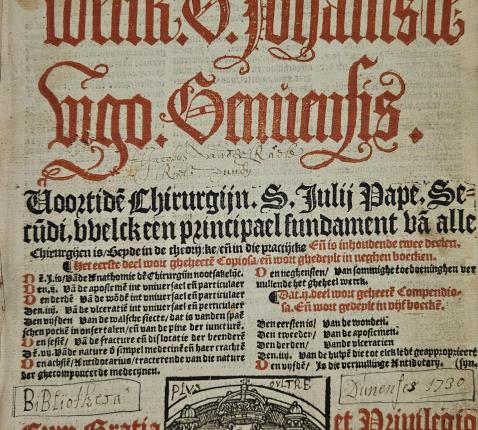 werck. D. Johannis de
Vigo. Genuensis.
Voortidẽ Chirurgijn. S. Julij Pape, Se-
cũdi, vvelck een principael fundament vã alle
Chirurgijen is / Beyde in de theorijcke / eñ in die practijcke Eñ is inhoudende twee deelen.
Het eerste deel wort gheheetẽ Copiosa / eñ wort ghedeylt in neghen boecken.
D ẽ .j. is / Vã de Anathomie dẽ Chirurgijn nootsakelijc.
Den .ij. Vã de apostemẽ int vniuersael eñ particulaer
D en derdẽ Vã de wõdẽ int vniuersael eñ particulaer
Den .iiij. Van de vlceratiẽ int vniuersael eñ particulaer
Den vijfden Van de walsche siecte / dat is van den spaẽ
schen pockẽ in onser talen / eñ van de pine der iuncturẽ.
D en sestẽ / Vã de fracturen eñ dislocatiẽ der beenderẽ
Dẽ .vij. Vã de nature ð simpel medecinẽ eñ haer crachtẽ
D en achstẽ / Antidotarius / tracterende van die nature
der ghecomponeerde medecynen.
D en neghensten / Van sommighe toedoeninghen ver
vullende het gheheel werck.
Dat .ij. deel wort geheetẽ Compendio-
sa. Eñ wort gedeylt in vijf boeckẽ.
Den eersten is / Van de wonden.
Den tweeden / Van de apostemen.
Den derden / Van de vlceratien
Den .iiij. Van de hulpẽ die tot elck ledẽ geapproprieert
D en vijfdẽ / Is die vervullinge Antidotary. (sijn.
BiBliotheca
PLVS OVLTRE
Dunenses 1730
Cum Gratia et Priuilegio